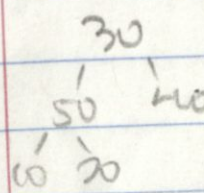 30
50 40
60 20